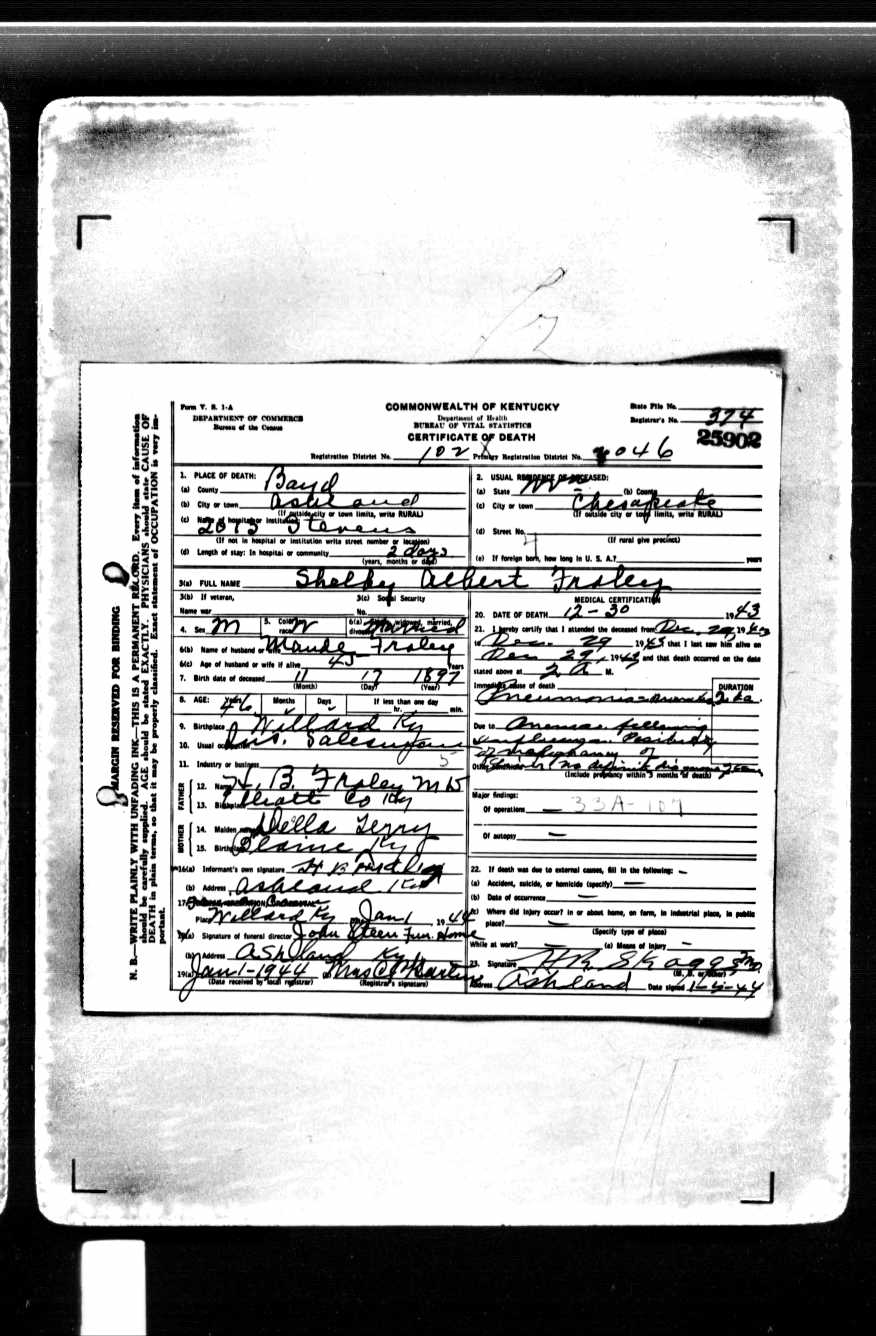 Form V. S. 1-A
DEPARTMENT OF COMMERCE
Bureau of the Census
COMMONWEALTH OF KENTUCKY
Department of Health
BUREAU OF VITAL STATISTICS
CERTIFICATE OF DEATH
State File No.
Registrar's No. 374
25902
Registration District No. 102 Primary Registration District No. 046
1. PLACE OF DEATH:
(a) County Boyd
(b) City or town Ashland
(If outside city or town limits, write RURAL)
(c) Name of hospital or institution 2013 Stevens
(If not in hospital or institution write street number or location)
(d) Length of stay: In hospital or community 2 days
(years, months or days)
2. USUAL RESIDENCE OF DECEASED:
(a) State (b) County
(c) City or town Chesapeake
(If outside city or town limits, write RURAL)
(d) Street No.
(If rural give precinct)
(e) If foreign born, how long in U. S. A.? years
3(a) FULL NAME Shelby Albert Fraley
3(b) If veteran,
Name war
3(c) Social Security
No.
4. Sex M 5. Color or race W 6(a) Single, widowed, married, divorced Married
6(b) Name of husband or wife Maude Fraley
6(c) Age of husband or wife if alive 45 Years
7. Birth date of deceased 11 17 1897
(Month) (Day) (Year)
8. AGE: Years 46 Months Days If less than one day
hr. min.
9. Birthplace Willard Ky
10. Usual occupation Ins. Salesman
11. Industry or business
FATHER
12. Name H. B. Fraley MD
13. Birthplace Elliott Co Ky
MOTHER
14. Maiden name Della Terry
15. Birthplace Blaine Ky
16(a) Informant's own signature H B Fraley
(b) Address Ashland Ky
17.
Place Willard Ky Jan 1 1944
18(a) Signature of funeral director John Steen Fun. Home
(b) Address Ashland Ky
19(a) Jan 1-1944 Mrs
(Date received by local registrar) (Registrar's signature)
MEDICAL CERTIFICATION
20. DATE OF DEATH 12-30 1943
21. I hereby certify that I attended the deceased from Dec. 29, 1943
to Dec. 29 1943 that I last saw him alive on
Dec 29, 1943 and that death occurred on the date
stated above at 2 A M.
Immediate cause of death DURATION
Pneumonia
Due to
(Include pregnancy within 3 months of death)
Major findings:
Of operations — 33A-107
Of autopsy —
22. If death was due to external causes, fill in the following: —
(a) Accident, suicide, or homicide (specify) —
(b) Date of occurrence —
(c) Where did injury occur? in or about home, on farm, in industrial place, in public
place? —
(Specify type of place)
While at work? — (e) Means of injury —
23. Signature H.R. Skaggs MD.
(M. D. or other)
Address Ashland Date signed 1-4-44
MARGIN RESERVED FOR BINDING
N. B.—WRITE PLAINLY WITH UNFADING INK—THIS IS A PERMANENT RECORD. Every item of information
should be carefully supplied. AGE should be stated EXACTLY. PHYSICIANS should state CAUSE OF
DEATH in plain terms, so that it may be properly classified. Exact statement of OCCUPATION is very im-
portant.